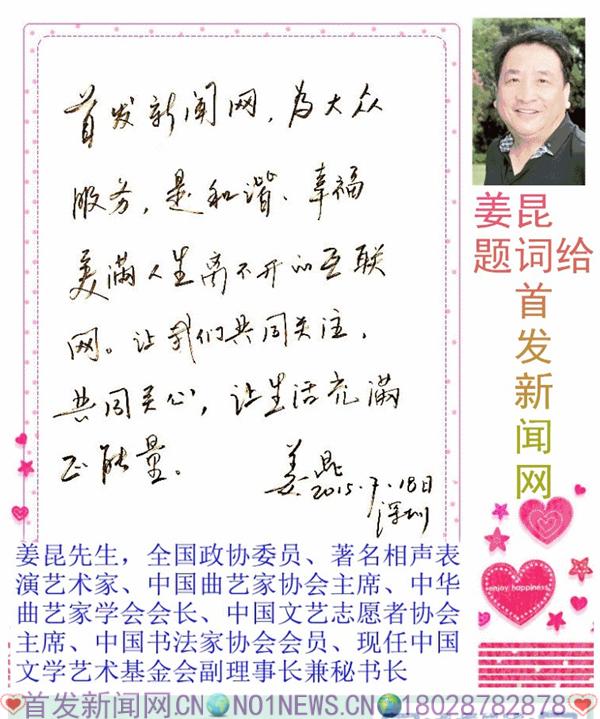 首发新闻网，为大众
服务，是和谐、幸福
美满人生离不开的互联
网。让我们共同关注，
共同关心，让生活充满
正能量。
姜昆
2015.7.18日
深圳
姜昆
题词给
首
发
新
闻
网
enjoy happiness
姜昆先生，全国政协委员、著名相声表
演艺术家、中国曲艺家协会主席、中华
曲艺家学会会长、中国文艺志愿者协会
主席、中国书法家协会会员、现任中国
文学艺术基金会副理事长兼秘书长
首发新闻网.CN NO1NEWS.CN 18028782878